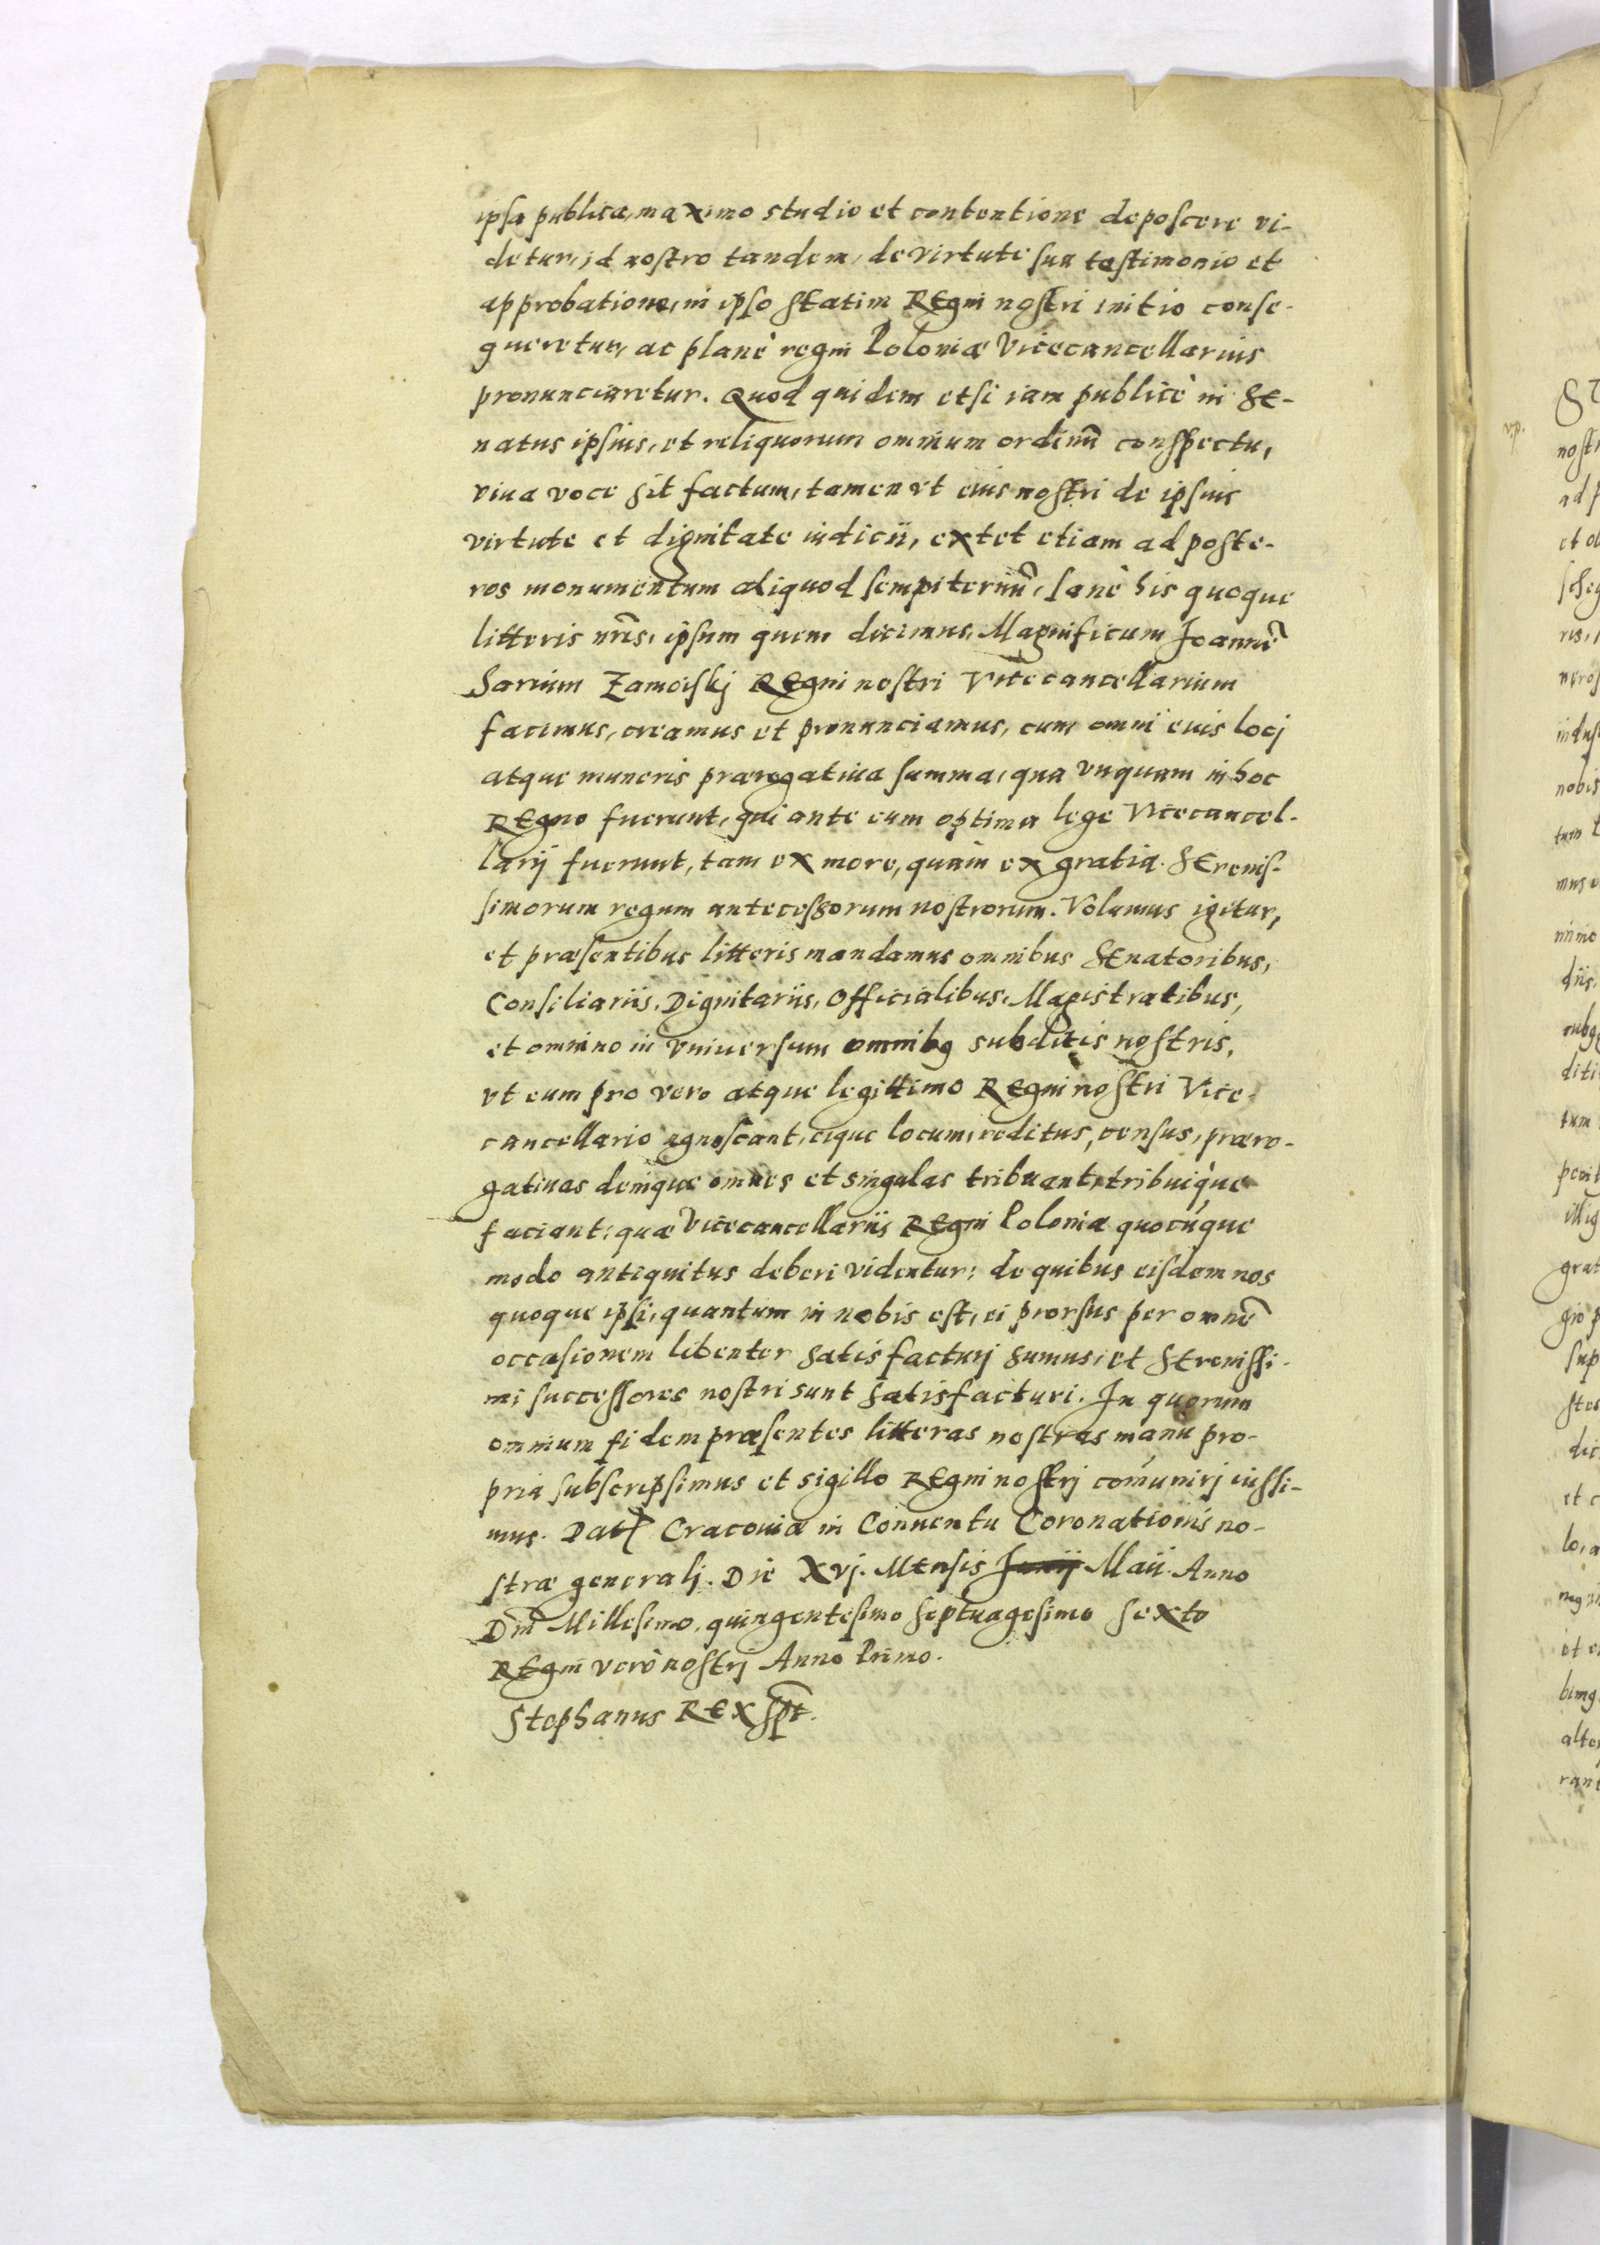 ipsa publica, maximo studio et contentione deposcere vi-
detur, id nostro tandem, de virtute sua testimonio et
approbatione, in ipso statim Regni nostri initio conse-
queretur, ac planè regni Poloniæ Vicecancellarius
pronunciaretur. Quod quidem etsi iam publicè in Se-
natus ipsius, et reliquorum omnium ordinũ conspectu,
viua voce sit factum, tamen vt eius nostri de ipsius
virtute et dignitate iudicii, extet etiam ad poste-
ros monumentum aliquod sempiternũ, sanè his quoque
litteris nr̃is, ipsum quem dicimus, Magnificum Joannẽ
Sarium Zamoiskj Regni nostri Vicecancellarium
facimus, creamus et pronunciamus, cum omni eius locj
atque muneris prærogatiua summa, qua vnquam in hoc
Regno fuerunt, qui ante eum optima lege Vicecancel-
larij fuerunt, tam ex more, quàm ex gratia Serenis-
simorum regum antecessorum nostrorum. Volumus igitur,
et præsentibus litteris mandamus omnibus Senatoribus,
Consiliariis, Dignitariis, Officialibus, Magistratibus,
et omnino in vniuersum omnibq subditis nostris,
vt eum pro vero atque legittimo Regni nostri Vice-
cancellario agnoscant, eique locum, reditus, census, præro-
gatiuas denique omnes et singulas tribuant, tribuique
faciant: quæ Vicecancellariis Regni Poloniæ quocúque
modo antiquitus deberi videntur: de quibus eisdem nos
quoque ipsi, quantum in nobis est, ei prorsus per omnẽ
occasionem libenter satisfacturj sumus, et Serenissi-
mi successores nostri sunt satisfacturi. In quorum
omnium fidem præsentes litteras nostras manu pro-
pria subscripsimus et sigillo Regni nostrj com̃unirj iussi-
mus. Dat Cracouiæ in Conuentu Coronationis no-
stræ generalj. Die Xvj. Mensis Junij Maii. Anno
Dnĩ Millesimo, quingentesimo septuagesimo sexto
Regni verò nostrj Anno Primo.
Stephanus Rex spt.